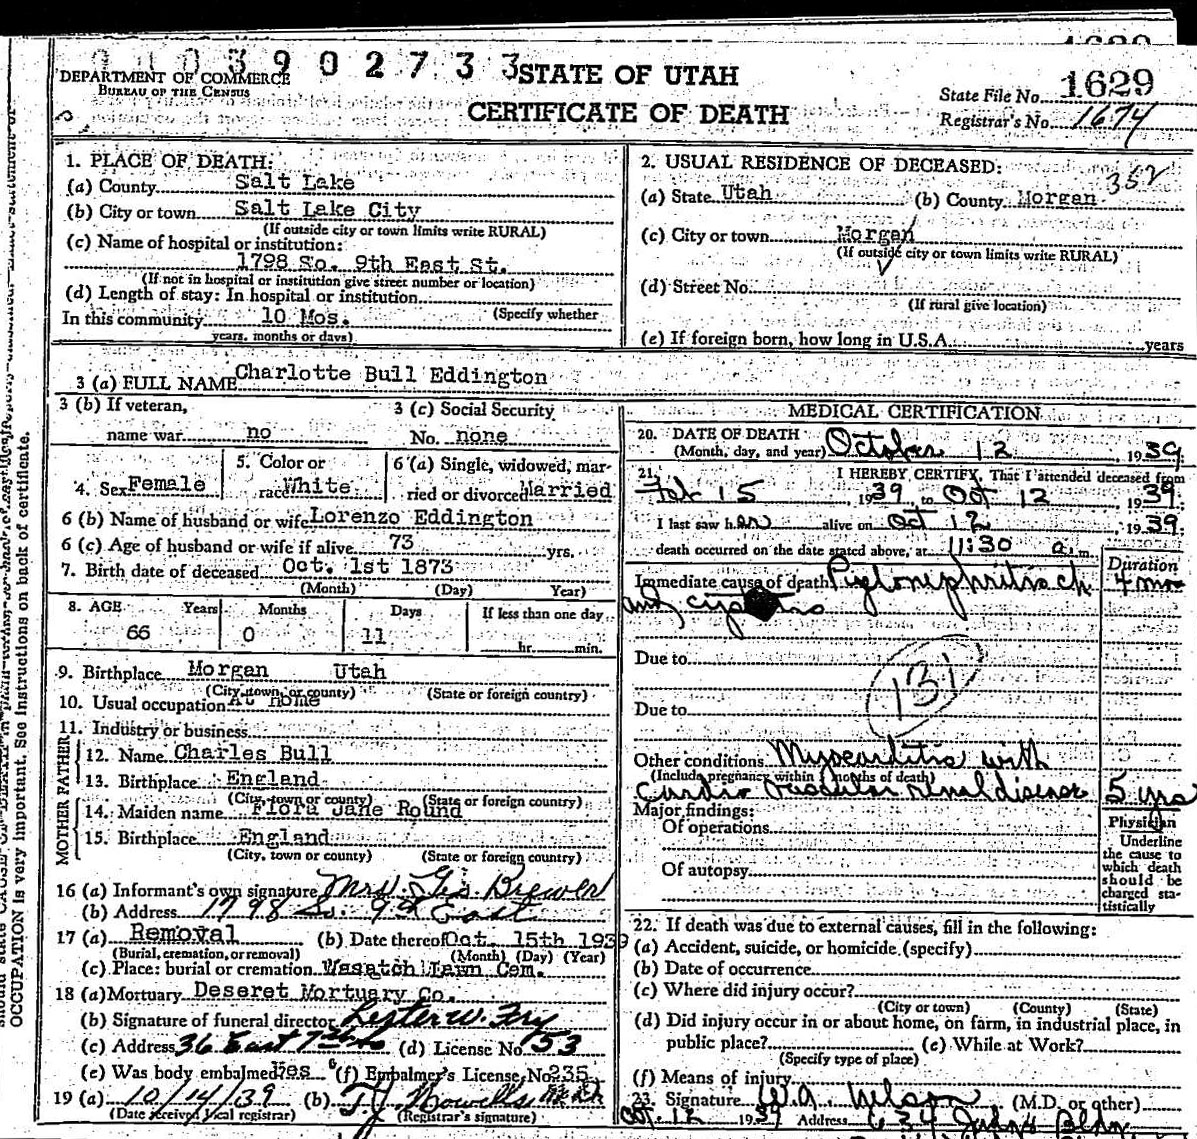 0 0 0 3 9 0 2 7 3 3
DEPARTMENT OF COMMERCE
BUREAU OF THE CENSUS
STATE OF UTAH
CERTIFICATE OF DEATH
State File No. 1629
Registrar's No. 1674
1. PLACE OF DEATH:
(a) County Salt Lake
(b) City or town Salt Lake City
(If outside city or town limits write RURAL)
(c) Name of hospital or institution:
1798 So. 9th East St.
(If not in hospital or institution give street number or location)
(d) Length of stay: In hospital or institution
In this community 10 Mos. (Specify whether
years, months or days)
2. USUAL RESIDENCE OF DECEASED:
352
(a) State Utah (b) County Morgan
(c) City or town Morgan
(If outside city or town limits write RURAL)
(d) Street No.
(If rural give location)
(e) If foreign born, how long in U.S.A. years
3 (a) FULL NAME Charlotte Bull Eddington
3 (b) If veteran,
name war no
3 (c) Social Security
No. none
4. Sex Female
5. Color or
race White
6 (a) Single, widowed, mar-
ried or divorced Married
6 (b) Name of husband or wife Lorenzo Eddington
6 (c) Age of husband or wife if alive 73 yrs.
7. Birth date of deceased Oct. 1st 1873
(Month) (Day) Year)
8. AGE Years Months Days If less than one day
66 0 11 hr. min.
9. Birthplace Morgan Utah
(City, town, or county) (State or foreign country)
10. Usual occupation At home
11. Industry or business
FATHER
12. Name Charles Bull
13. Birthplace England
(City, town or county) (State or foreign country)
MOTHER
14. Maiden name Flora Jane Round
15. Birthplace England
(City, town or county) (State or foreign country)
16 (a) Informant's own signature Mrs. Geo. Brewer
(b) Address 1798 So. 9th East
17 (a) Removal (b) Date thereof Oct. 15th 1939
(Burial, cremation, or removal) (Month) (Day) (Year)
(c) Place: burial or cremation Wasatch Lawn Cem.
18 (a) Mortuary Deseret Mortuary Co.
(b) Signature of funeral director Lester W.
(c) Address 36 East 7th So (d) License No. 153
(e) Was body embalmed? Yes (f) Embalmer's License No. 235
19 (a) 10/14/39 (b) T J Howells
(Date received local registrar) (Registrar's signature)
MEDICAL CERTIFICATION
20. DATE OF DEATH
(Month, day, and year) October 12, 1939
21. I HEREBY CERTIFY, That I attended deceased from
Feb 15 1939 to Oct 12 1939
I last saw her alive on Oct 12 1939
death occurred on the date stated above, at 11:30 a.m.
Duration
Immediate cause of death Pyelonephritis ch 4 mo
and cystitis
Due to
131
Due to
Other conditions Myocarditis with
(Include pregnancy within months of death)
Cardio vascular renal disease 5 yrs
Major findings:
Of operations
Of autopsy
Physician
Underline
the cause to
which death
should be
charged sta-
tistically
22. If death was due to external causes, fill in the following:
(a) Accident, suicide, or homicide (specify)
(b) Date of occurrence
(c) Where did injury occur?
(City or town) (County) (State)
(d) Did injury occur in or about home, on farm, in industrial place, in
public place? (e) While at Work?
(Specify type of place)
(f) Means of injury
23. Signature W.A. Nelson (M.D. or other)
Oct. 12 1939 Address 634 Judge Bldg
OCCUPATION is very important. See instructions on back of certificate.